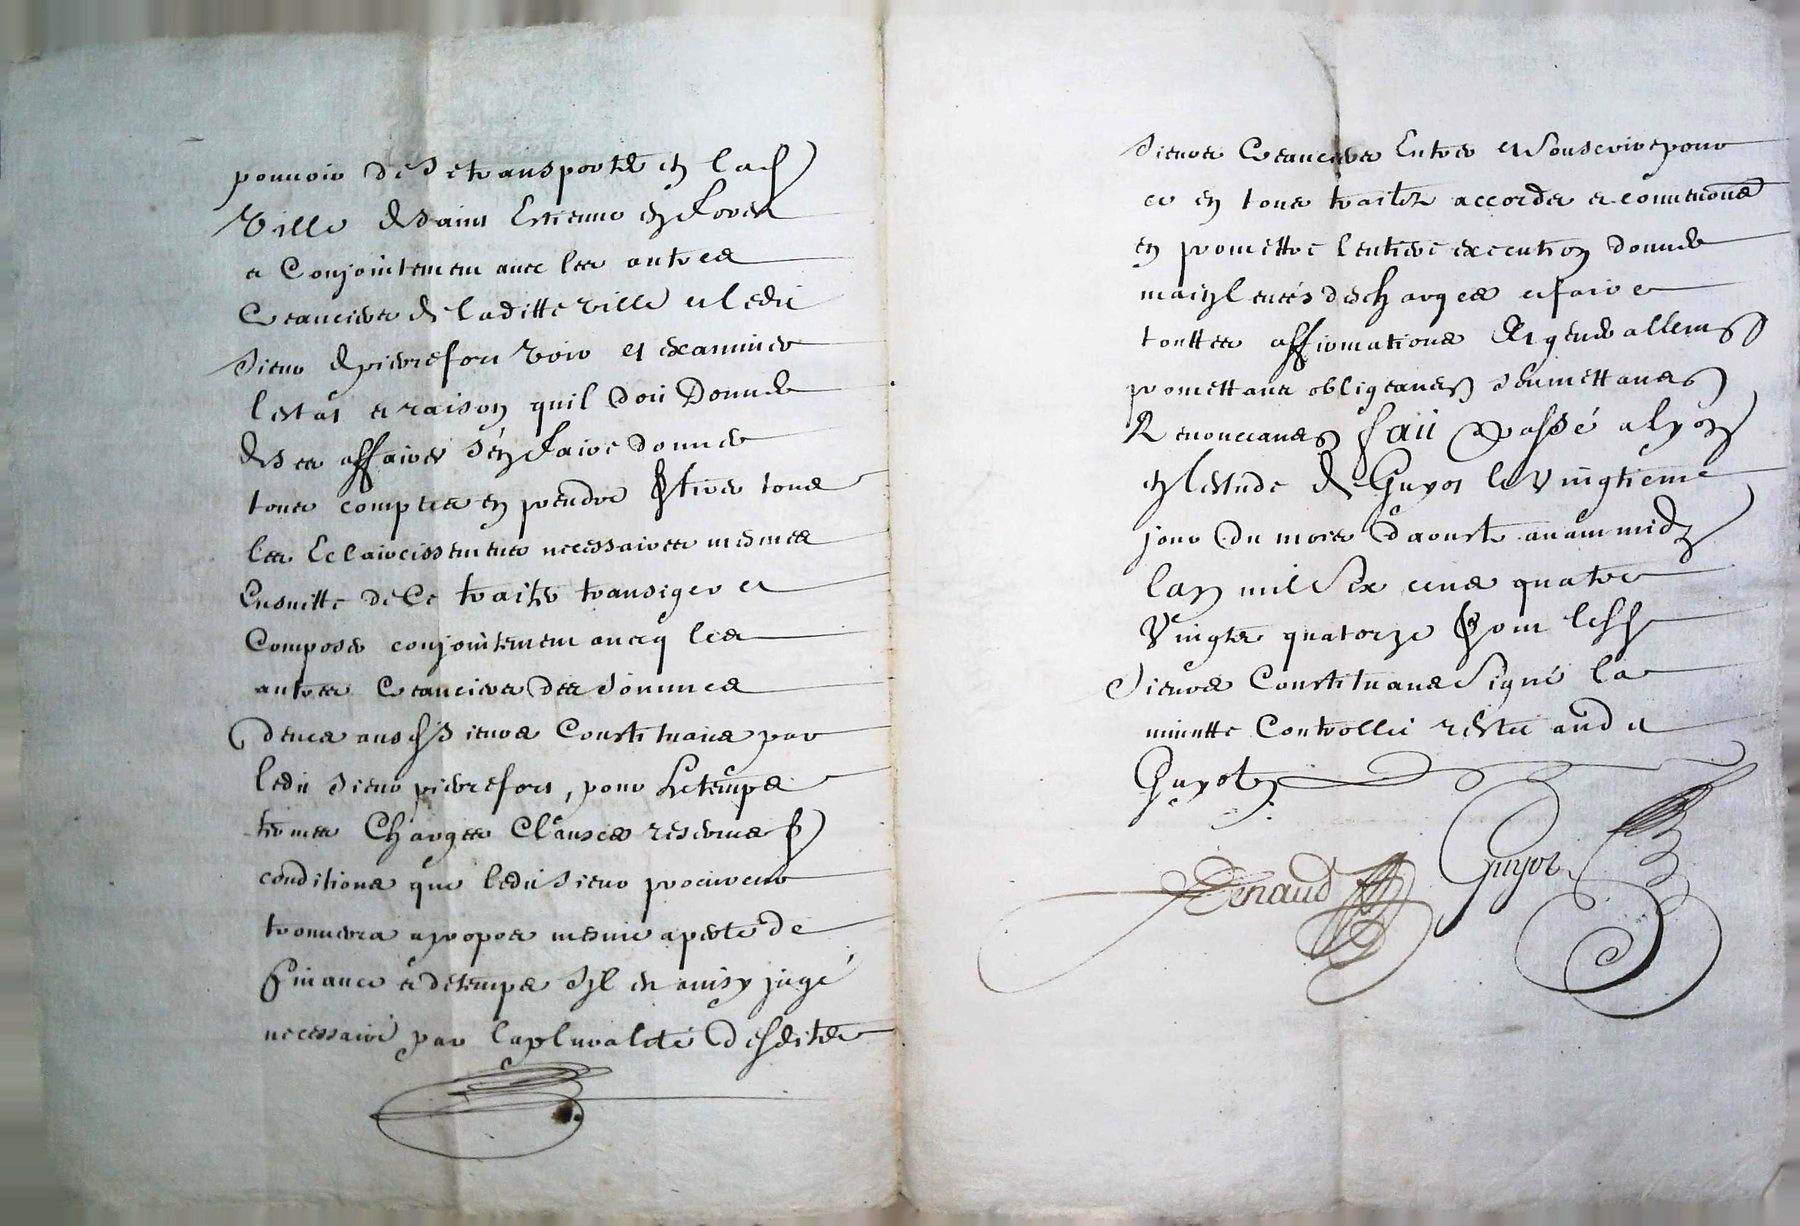 pouvoir de se transporter en lad
Ville de Saint Estienne en forest
et Conjointement avec les autres
Creanciers de laditte ville et ledit
Sieur de pierrefort voir et examiner
lestat et raison quil doit Donner
de ses affaires s'en faire donner
tous comptes en prendre & tirer tous
les Eclaircissements necessaires mesmes
Ensuitte de Ce traiter transiger et
Composer conjointement avecq les
autres Creanciers des sommes
deues ausd Sieurs Constituans par
ledit Sieur pierrefort, pour Le temps
termes Charges Clauses reserves &
conditions que ledit Sieur procureur
trouvera a propos mesme a perte de
finance et de temps Sil en ainsy jugé
necessaire par la pluralité desdits
Sieurs Creanciers Entrer et Souscrire pour
ce en tous traitez accordes et conventions
en promettre lentiere execution donner
mainlevées descharges et faire
touttes affirmations Et generallement
promettans obligeans soumettans
Renonceans fait & passé a lyon
en lestude de Guyot le Vingtieme
jour du mois daoust avant midy
lan mil Six cens quatre
Vingts quatorze & ont lesd
Sieurs Constituans Signé la
minutte Controllée restée aud
Guyot
Renaud Guyot